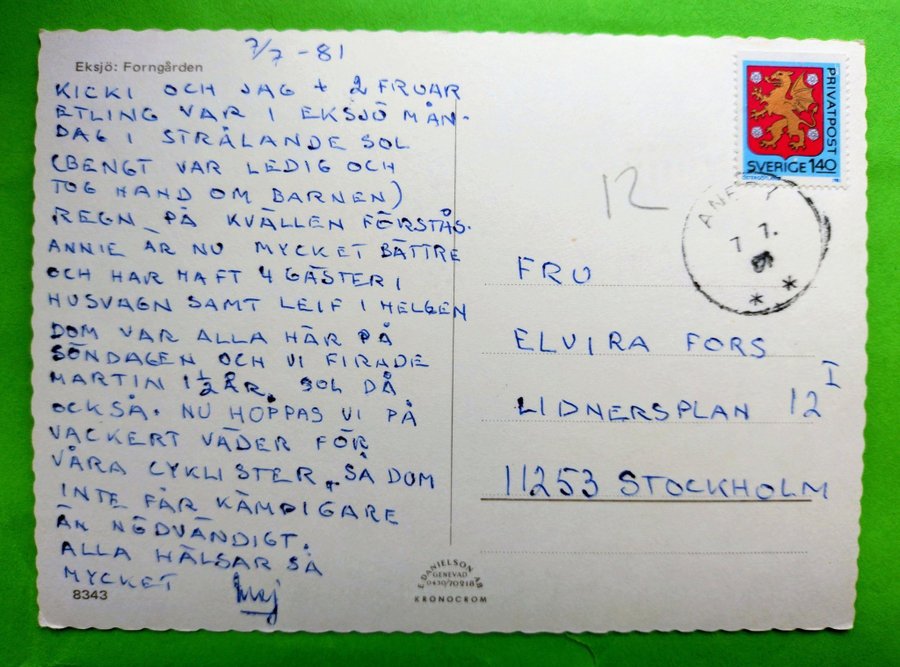 7/7 -81
Eksjö: Forngården
KICKI OCH JAG + 2 FRUAR
ETLING VAR I EKSJÖ MÅN-
DAG I STRÅLANDE SOL
(BENGT VAR LEDIG OCH
TOG HAND OM BARNEN)
REGN PÅ KVÄLLEN FÖRSTÅS.
ANNIE ÄR NU MYCKET BÄTTRE
OCH HAR HAFT 4 GÄSTER I
HUSVAGN SAMT LEIF I HELGEN
DOM VAR ALLA HÄR PÅ
SÖNDAGEN OCH VI FIRADE
MARTIN 1½ ÅR. SOL DÅ
OCKSÅ. NU HOPPAS VI PÅ
VACKERT VÄDER FÖR
VÅRA CYKLISTER, SÅ DOM
INTE FÅR KÄMPIGARE
ÄN NÖDVÄNDIGT.
ALLA HÄLSAR SÅ
MYCKET Maj
8343
PRIVATPOST
SVERIGE 1.40
12
7 7.
* *
FRU
ELVIRA FORS
LIDNERSPLAN 12 I
11253 STOCKHOLM
E. DANIELSON AB
GENEVAD
0430/70218
KRONOCROM